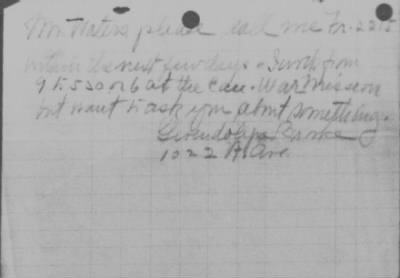 Mr. Waters please call me Fr. 2215
within the next few days. I work from
9 to 5 30 or 6 at the Cal. War Mission
but want to ask you about something.
Gwendolyn
1022 A. Ave.